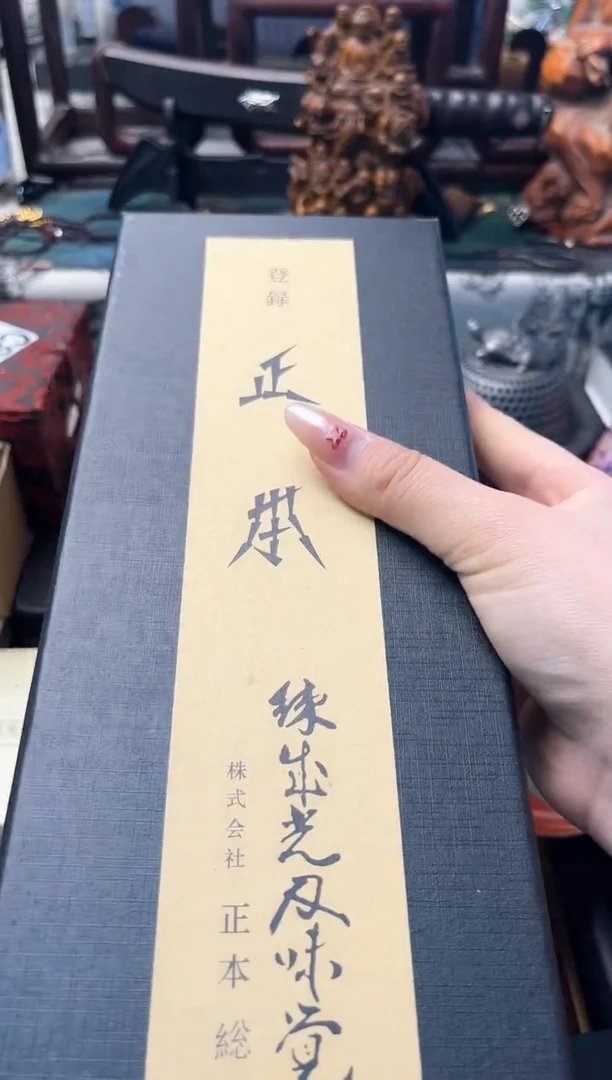 登録
正本
練成光刃味覚
株式会社 正本総